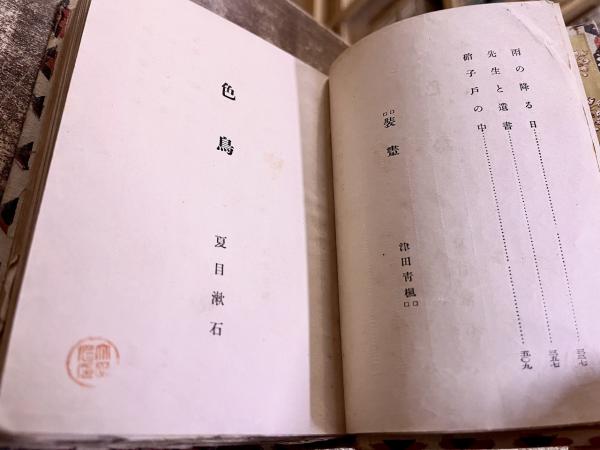 雨の降る日………三三七
先生と遺書………三五七
硝子戸の中………五〇九
装畫
津田青楓
色鳥
夏目漱石